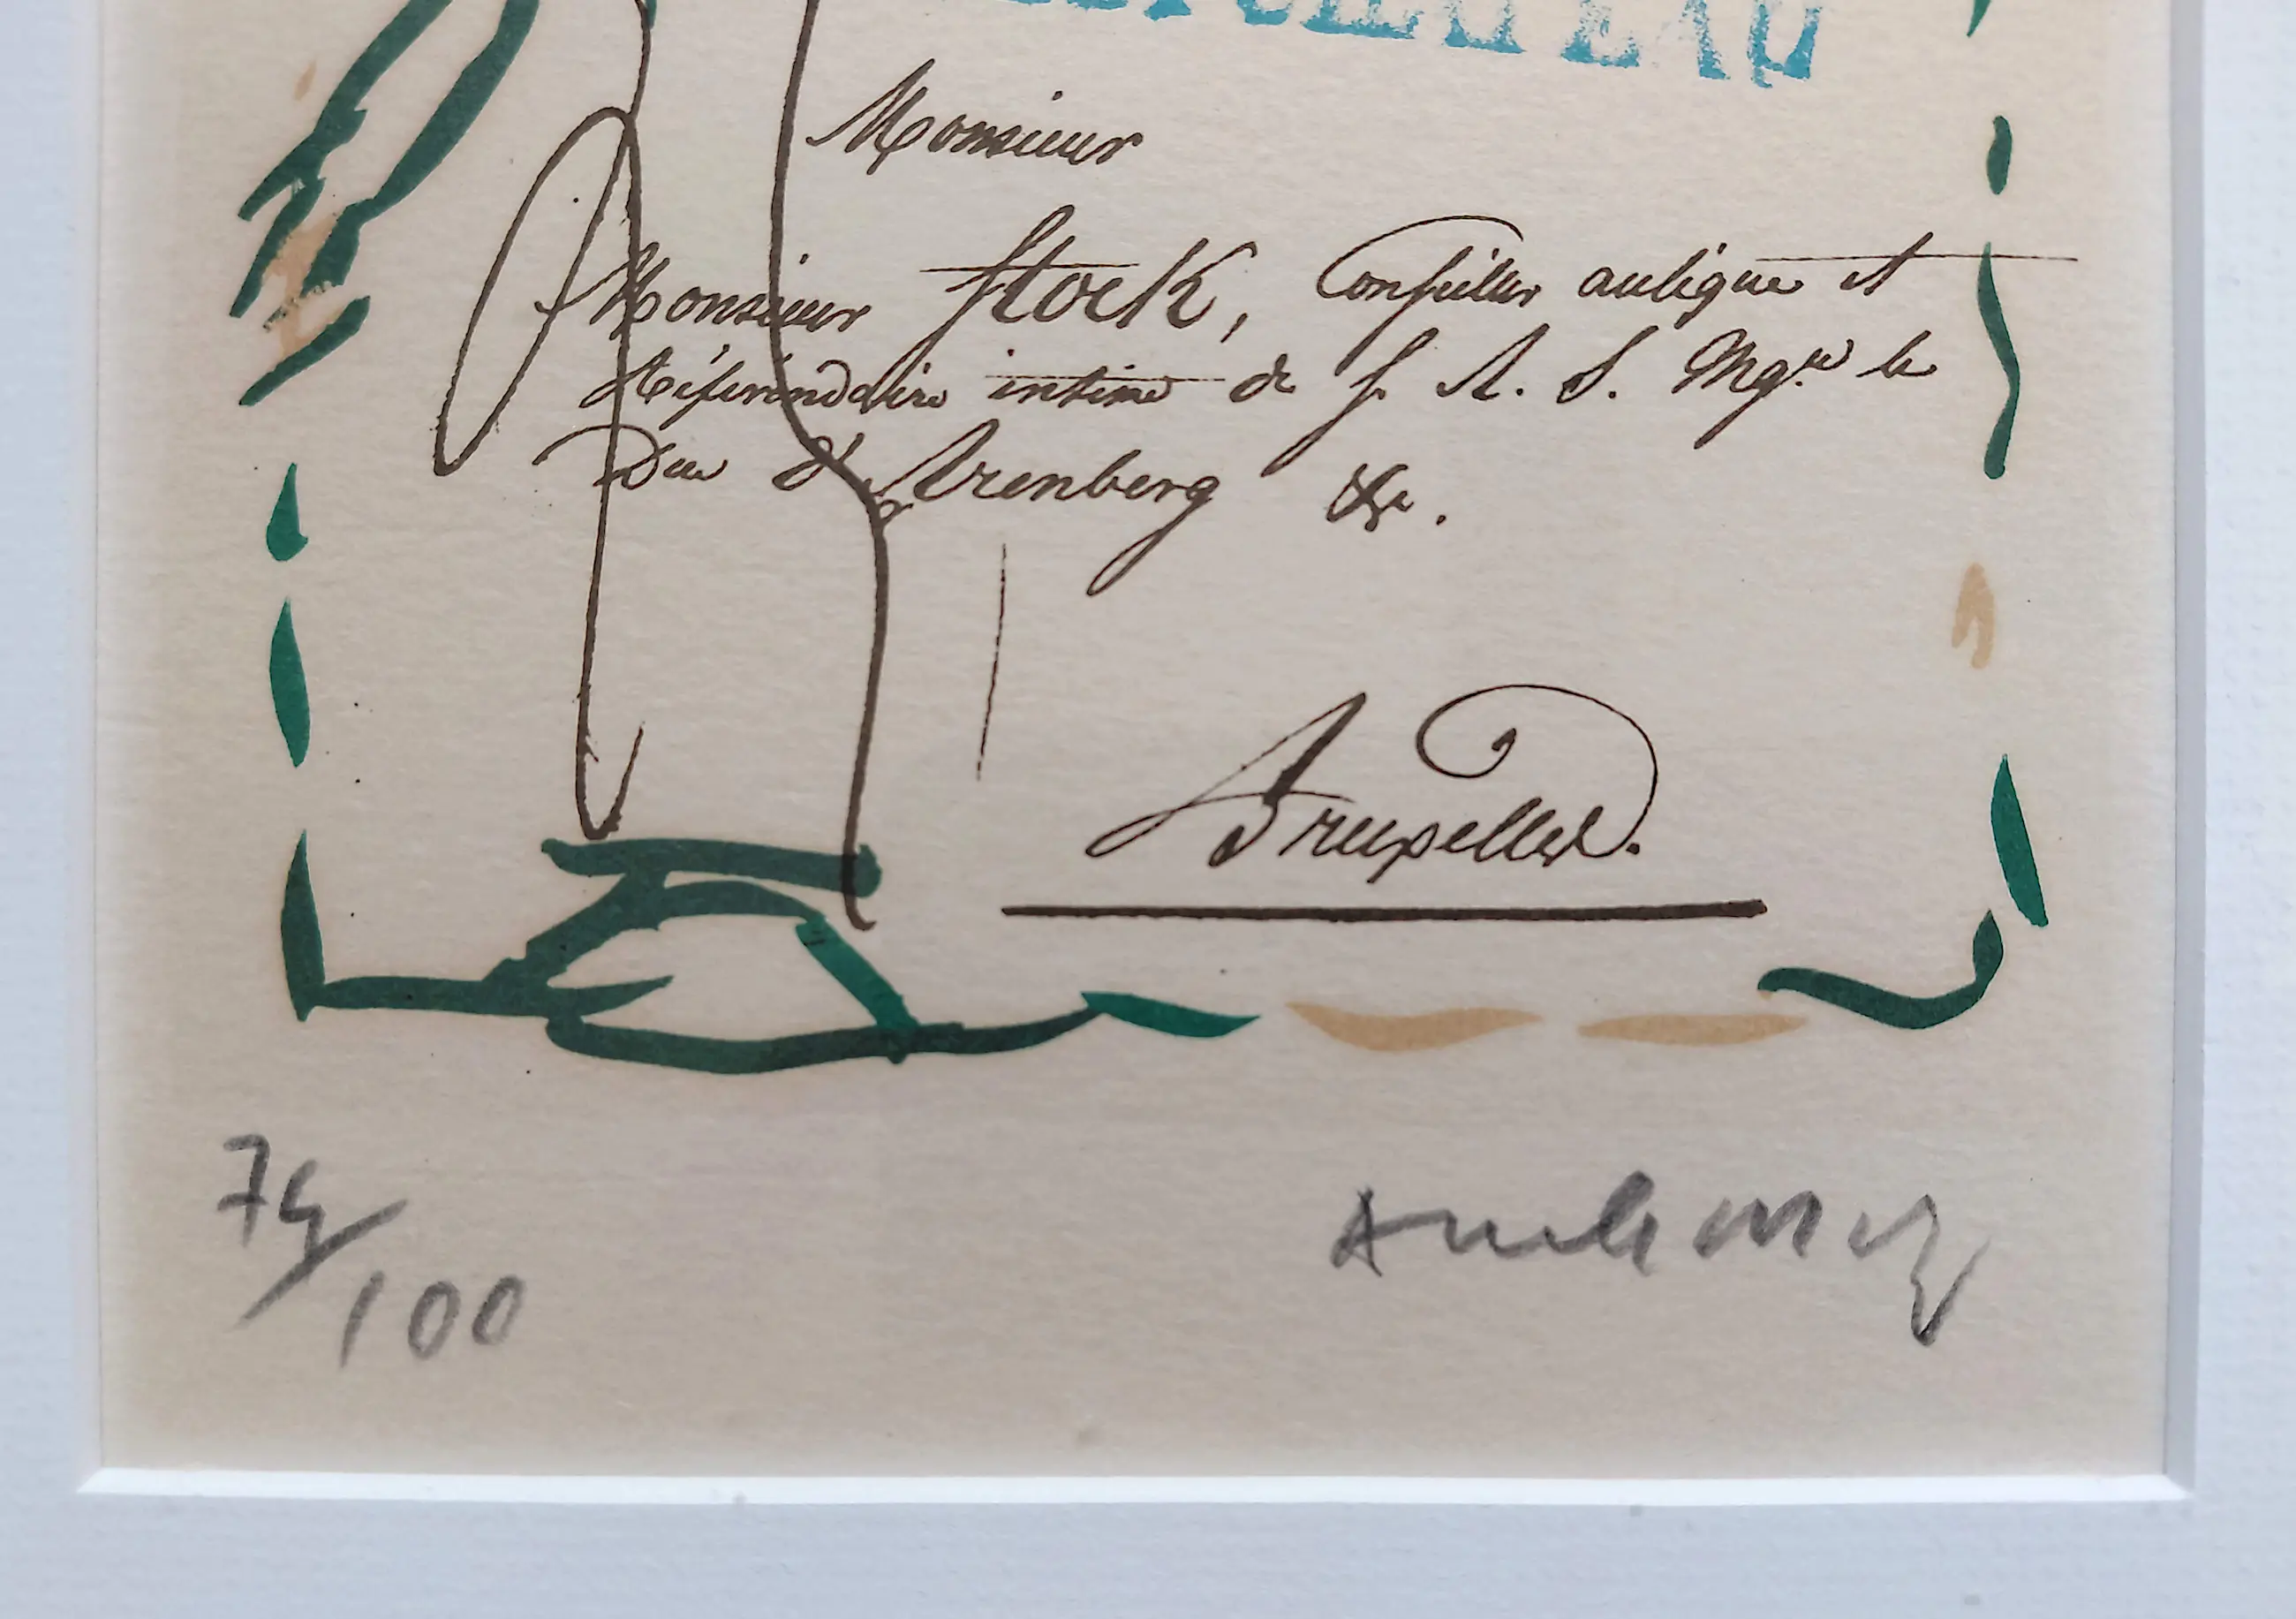 EAU
Monsieur
Monsieur Stock, Conseiller aulique et
Référendaire intime de S. A. S. Mgr. le
Duc d'Arenberg &c.
Bruxelles.
74/100